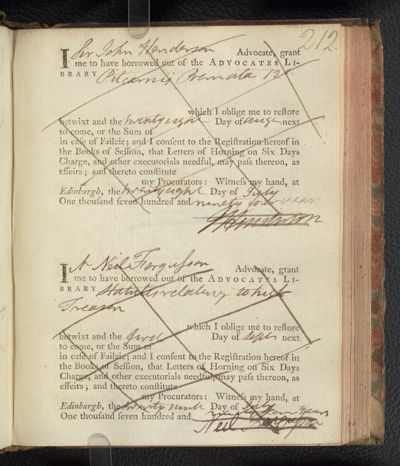 212.
I Sir John Henderson Advocate, grant
me to have borrowed out of the ADVOCATES LI-
BRARY Pitcairnii Poemata 12°
which I oblige me to restore
betwixt and the twenty eight Day of next
to come, or the Sum of
in case of Failzie; and I consent to the Registration hereof in
the Books of Session, that Letters of Horning on Six Days
Charge, and other executorials needful, may pass thereon, as
effeirs; and thereto constitute
my Procurators: Witness my hand, at
Edinburgh, the twenty eight Day of July
One thousand seven hundred and ninety four years
I A Neil Fergusson Advocate, grant
me to have borrowed out of the ADVOCATES LI-
BRARY Statutes relating to high
Treason
which I oblige me to restore
betwixt and the first Day of Sept next
to come, or the Sum of
in case of Failzie; and I consent to the Registration hereof in
the Books of Session, that Letters of Horning on Six Days
Charge, and other executorials needful, may pass thereon, as
effeirs; and thereto constitute
my Procurators: Witness my hand, at
Edinburgh, the twenty ninth Day of July
One thousand seven hundred and ninety four years
Neil Fergusson